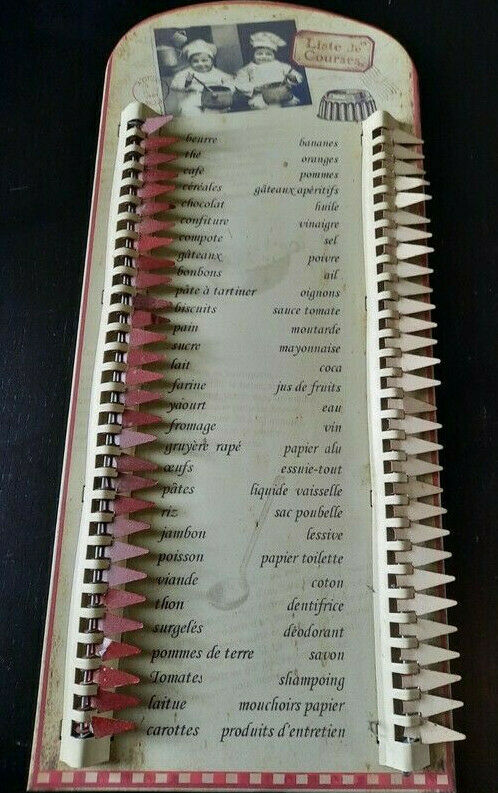 Liste de
Courses
beurre bananes
thé oranges
café pommes
céréales gâteaux apéritifs
chocolat huile
confiture vinaigre
compote sel
gâteaux poivre
bonbons ail
pâte à tartiner oignons
biscuits sauce tomate
pain moutarde
sucre mayonnaise
lait coca
farine jus de fruits
yaourt eau
fromage vin
gruyère rapé papier alu
œufs essuie-tout
pâtes liquide vaisselle
riz sac poubelle
jambon lessive
poisson papier toilette
viande coton
thon dentifrice
surgelés déodorant
pommes de terre savon
Tomates shampoing
laitue mouchoirs papier
carottes produits d'entretien